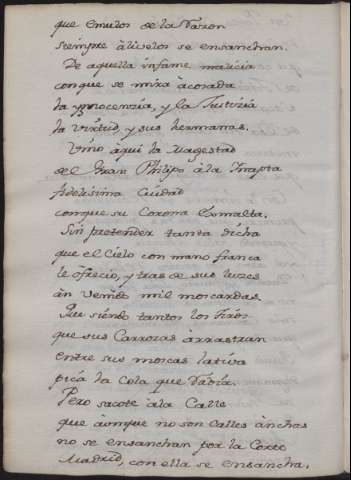 que emulos de la Razon
siempre àlivelos se ensanchan.
De aquella infame malicia
con que se mira àcorada
la ynnocenzia, y la Justizia
la virtud, y sus hermanas.
Vino àqui la Magestad
del Gran Philipo à la
fidelissima Ciudad
conque su Corona Esmalta.
Sin pretender tanta dicha
que el Cielo con mano franca
le ofrecio, y tras de sus luzes
àn venido mil moscardas.
Que siendo tantos los tiros
que sus Carrozas àrrastran
entre sus moscas lativa
pica la Cola que rabia.
Pero sacote àla Calle
que àunque no son calles ànchas
no se ensanchan por la Corte
Madrid, con ella se ensancha.